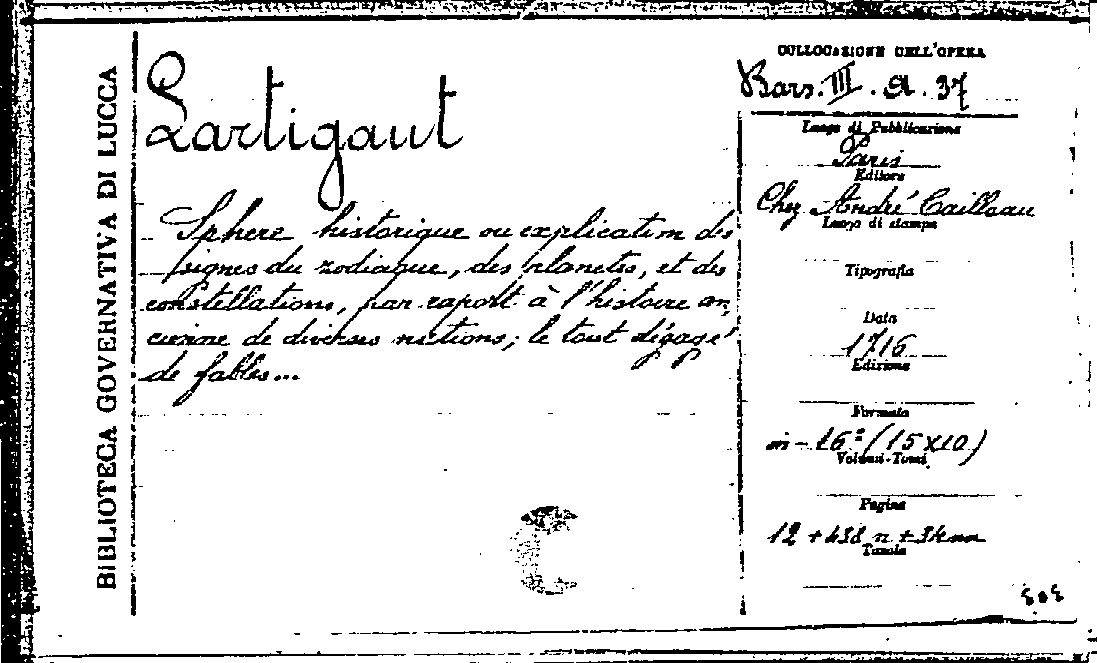 BIBLIOTECA GOVERNATIVA DI LUCCA
Lartigaut
Sphere historique ou explication des
signes du zodiaque, des planetes, et des
constellations, par raport à l'histoire an,
cienne de diverses nations; le tout dégagé
de fables...
COLLOCAZIONE DELL'OPERA
Bars. III. A. 37
Luogo di Pubblicazione
Paris
Editore
Chez André Cailleau
Luogo di stampa
Tipografia
Data
1716
Edizione
Formato
in-16º (15x10)
Volumi-Tomi
Pagine
12 + 438 n + 34 nn
Tavole